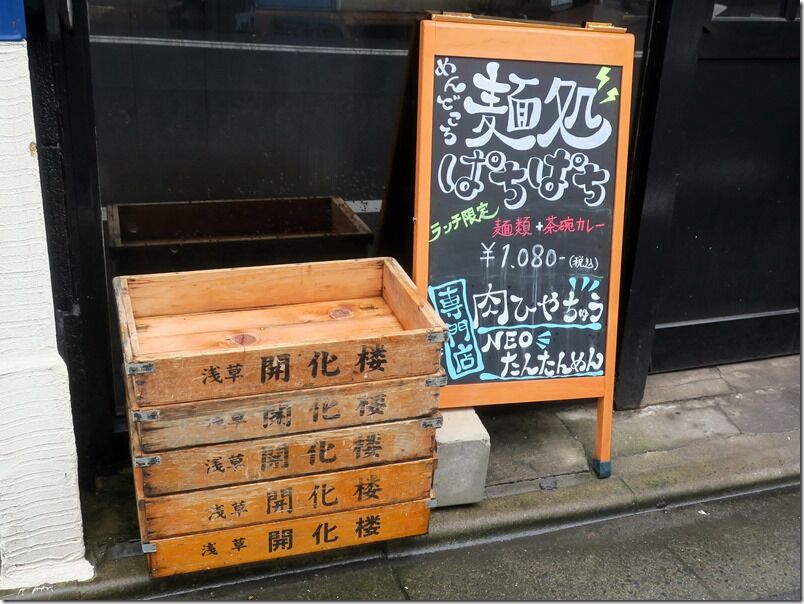 めんどころ
麺処
ぱちぱち
ランチ限定
麺類+茶碗カレー
¥1,080-(税込)
専門店
肉ひやちゅう
NEO
たんたんめん
浅草 開化楼
浅草 開化楼
浅草 開化楼
浅草 開化楼
浅草 開化楼